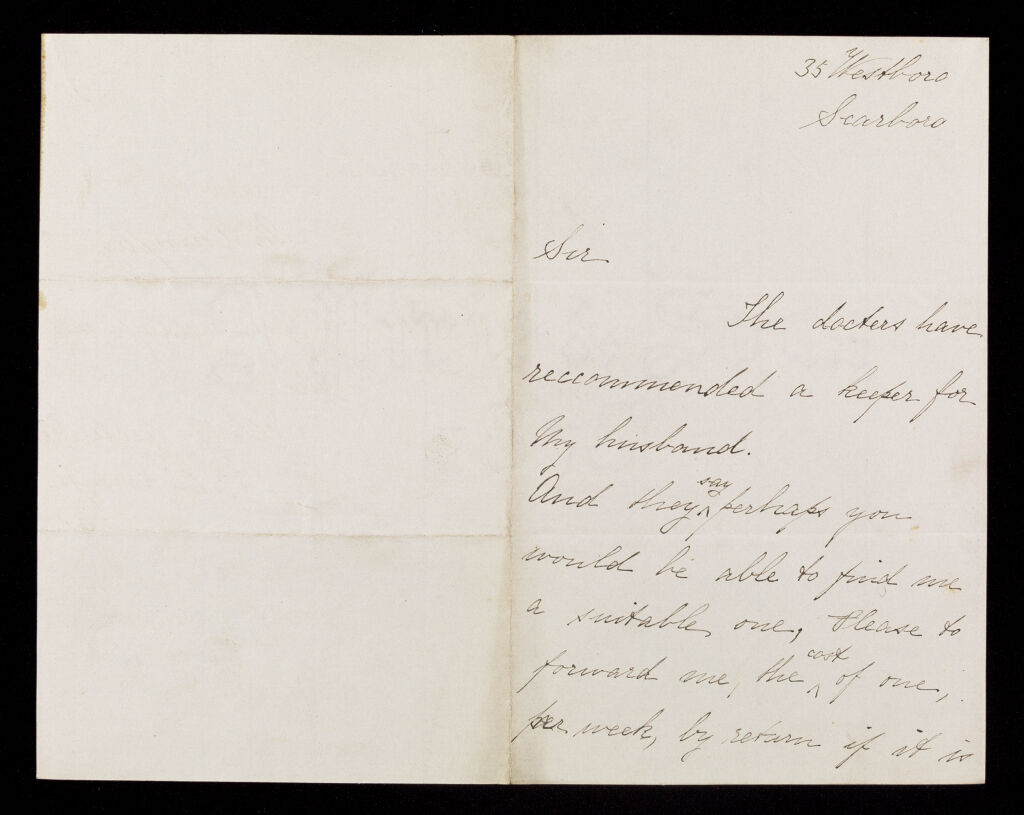 35 Westboro
Scarboro
Sir
The docters have
reccommended a keeper for
My husband.
And they say perhaps you
would be able to find me
a suitable one, Please to
forward me, the cost of one,
per week, by return if it is